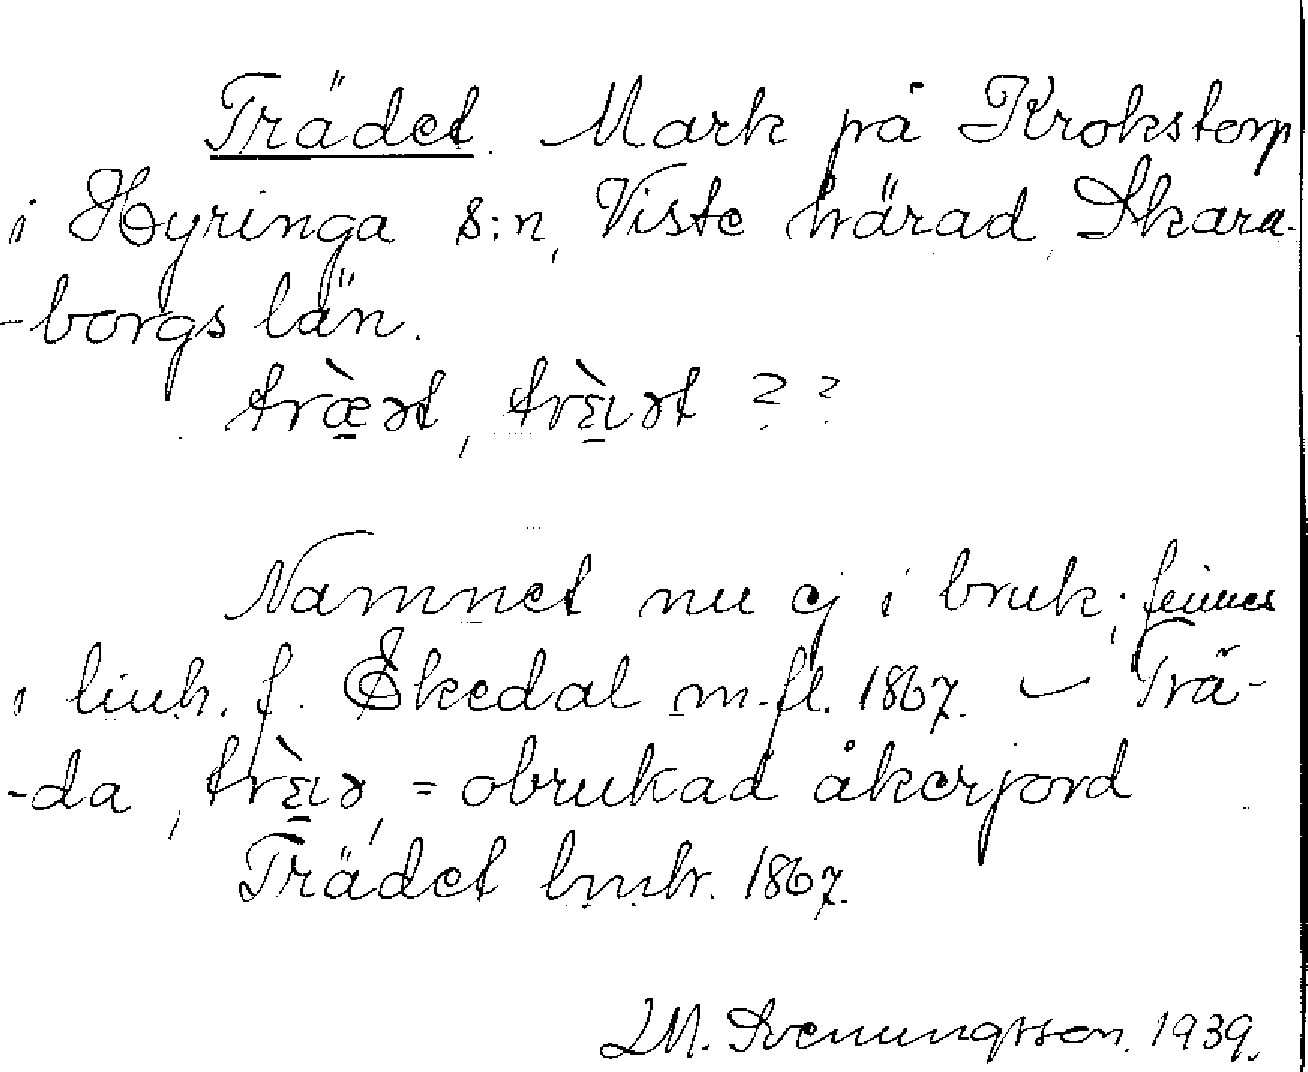 Trädet. Mark på Krokstorp
i Hyringa s:n, Viste härad, Skara-
-borgs län.
træ̀ət, trɛ̀ıət ??
Namnet nu ej i bruk; finnes
i lmh. f. Ekedal m.fl. 1867. – Trä-
-da, trɛ̀ıə, = obrukad åkerjord
Trädet lmh. 1867.
LM. Svenungsson. 1939.